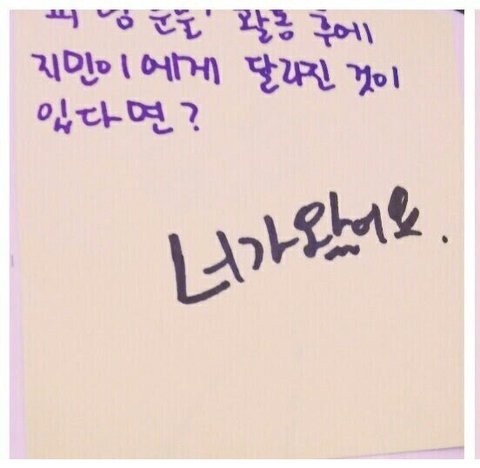 피 땀 눈물' 활동 후에
지민이에게 달라진 것이
있다면?
너가 왔어요.